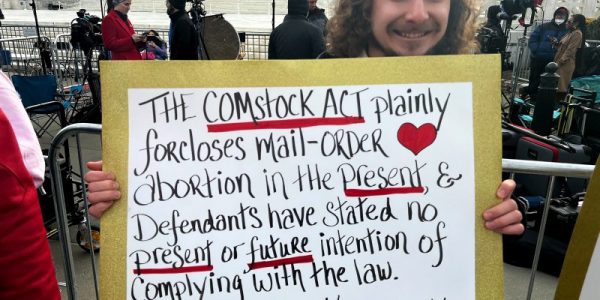 THE COMSTOCK ACT plainly
forcloses MAIL-ORDER
abortion in the Present, &
Defendants have stated no
present or future intention of
complying with the law.